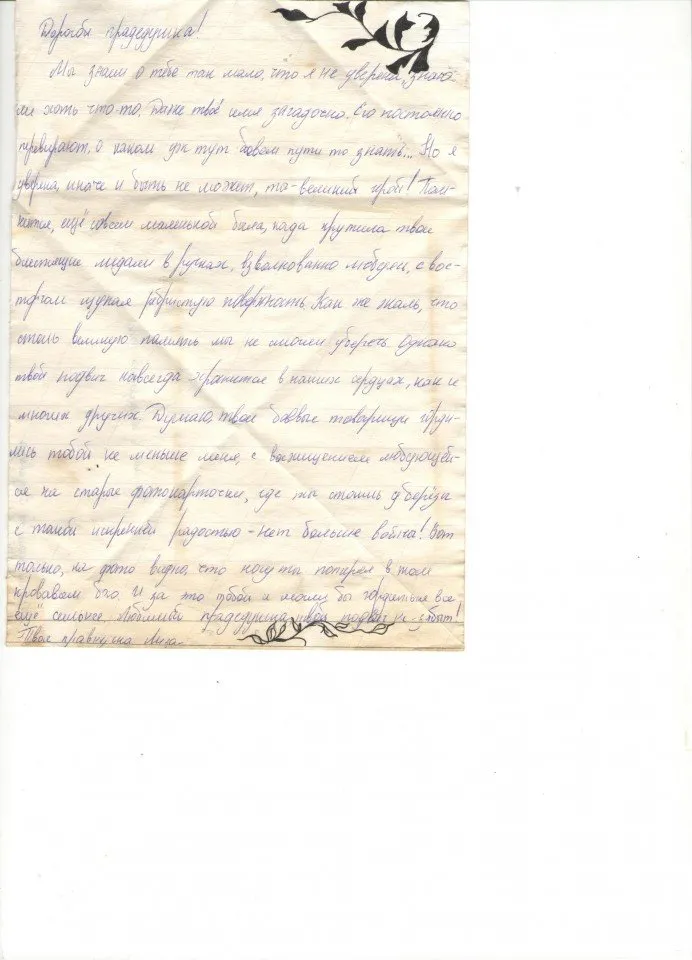 Дорогой прадедушка!
Мы знаем о тебе так мало, что я не уверена, знаем
ли хоть что-то. Даже твоё имя загадочно. Его постоянно
перевирают, о каком уж тут боевом пути то знать... Но я
уверена, иначе и быть не может, ты-великий герой! Пом-
нится, ещё совсем маленькой была, когда крутила твои
блестящие медали в ручках, взволнованно любуясь, с вос-
торгом щупая ребристую поверхность. Как же жаль, что
столь великую память мы не смогли уберечь. Однако
твой подвиг навсегда хранится в наших сердцах, как и
многих других. Думаю, твои боевые товарищи горди-
лись тобой не меньше меня, с восхищением любующей-
ся на старые фотокарточки, где ты стоишь у берёзы
с такой искренней радостью-нет больше войны! Вот
только, на фото видно, что ногу ты потерял в том
кровавом бою. И за это тобой я могла бы гордиться все
ещё сильнее. Любимый прадедушка, твой подвиг не-забыт!
Твоя правнучка